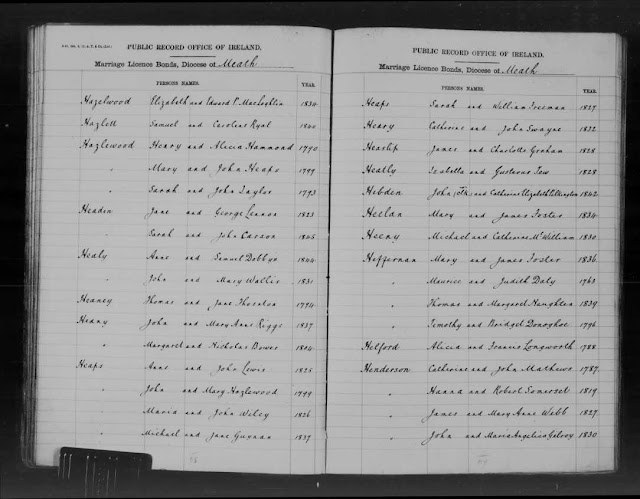 PUBLIC RECORD OFFICE OF IRELAND.
Marriage Licence Bonds, Diocese of Meath
PERSONS NAMES. YEAR.
Hazelwood Elizabeth and Edward P. MacLochlin 1834
Hazlett Samuel and Caroline Ryal 1840
Hazlewood Henry and Alicia Hammond 1790
" Mary and John Heaps 1799
" Sarah and John Taylor 1793
Headen Jane and George Lennon 1823
" Sarah and John Carson 1845
Healy Anne and Samuel Dobbyn 1844
" John and Mary Wallis 1831
Heaney Thomas and Jane Thornton 1794
Heany John and Mary Anne Riggs 1837
" Margaret and Nicholas Bowes 1804
Heaps Anne and John Lewis 1825
" John and Mary Hazlewood 1799
" Maria and John Wiley 1826
" Michael and Jane Guynan 1837
PUBLIC RECORD OFFICE OF IRELAND.
Marriage Licence Bonds, Diocese of Meath
PERSONS NAMES. YEAR.
Heaps Sarah and William Freeman 1827
Heary Catherine and John Swayne 1832
Heaslip James and Charlotte Graham 1828
Heatly Isabella and Gustavus Tew 1828
Hebden John and Catherine Elizabeth Pilkington 1842
Heelan Mary and James Foster 1834
Heeny Michael and Catherine McWilliam 1830
Heffernan Mary and James Foster 1836
" Maurice and Judith Daly 1763
" Thomas and Margaret Naughten 1839
" Timothy and Bridget Donoghoe 1796
Helford Alicia and Francis Longworth 1788
Henderson Catherine and John Mathews 1787
" Hanna and Robert Somerset 1819
" James and Mary Anne Webb 1827
" John and Maria Angelica Galvoy 1830